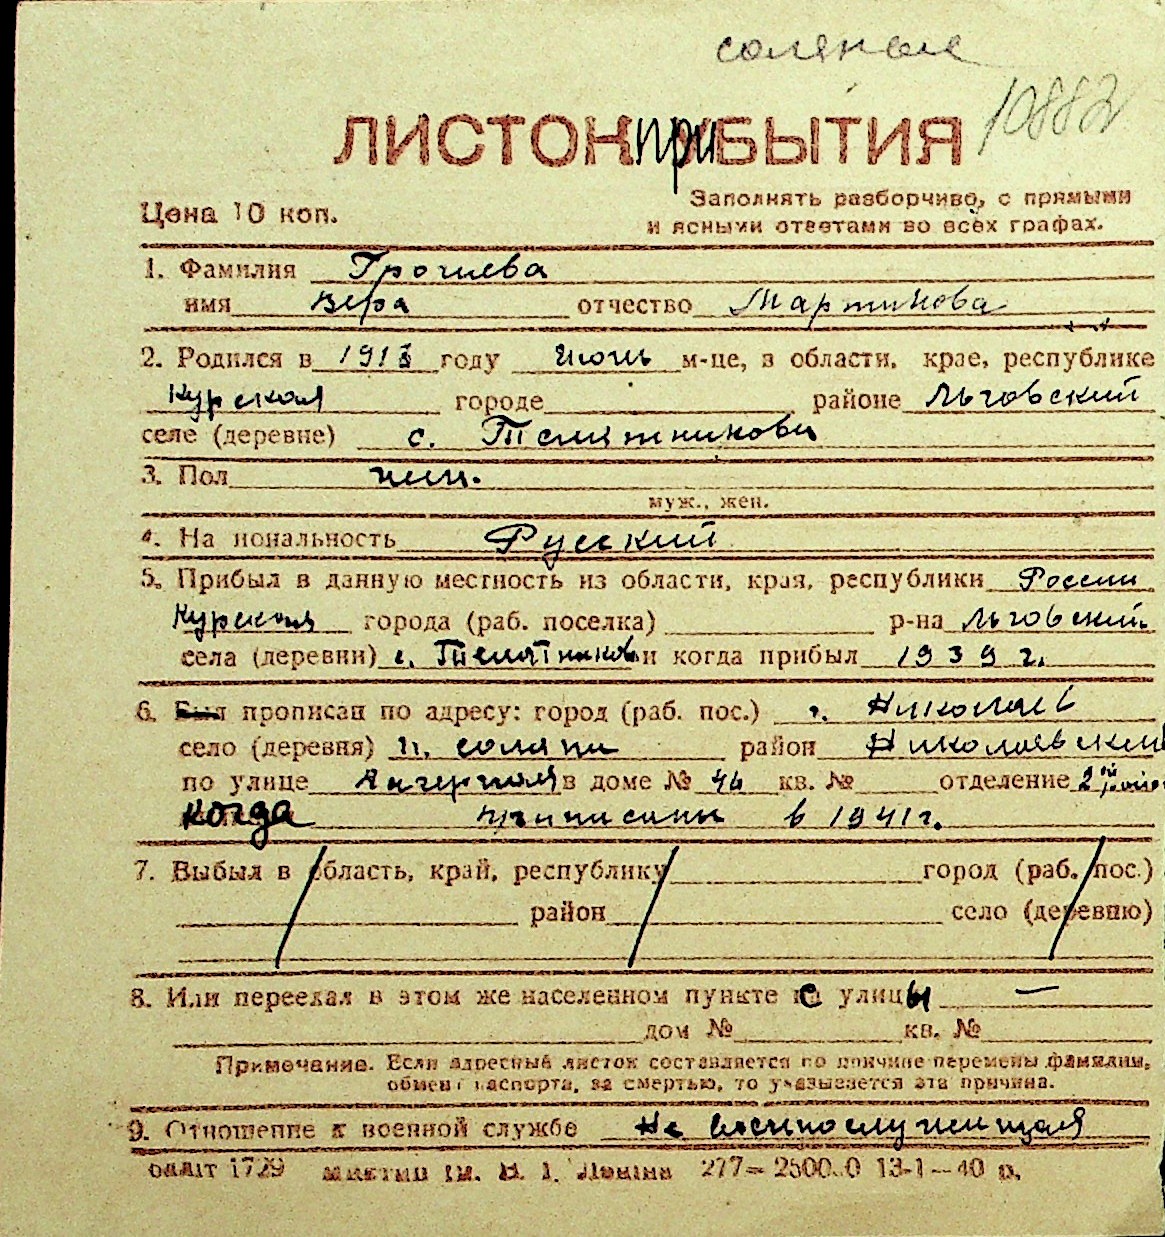 соляные
10882
ЛИСТОК ПРИБЫТИЯ
Цена 10 коп.
Заполнять разборчиво, с прямыми
и ясными ответами во всех графах.
1. Фамилия Грочиева
имя Вера отчество Мартинова
2. Родился в 1913 году июнь м-це, в области, крае, республике
Курская городе районе Льговский
селе (деревне) с. Телятникови
3. Пол жен.
муж., жен.
4. На иональность Русский
5. Прибыл в данную местность из области, края, республики России
Курская города (раб. поселка) р-на Льговский
села (деревни) с. Телятников и когда прибыл 1939 г.
6. Был прописан по адресу: город (раб. пос.) г. Николаев
село (деревня) п. соляни район Николаевский
по улице в доме № 46 кв. № отделение 2й район
когда прописаны в 1941 г.
7. Выбыл в область, край, республику город (раб. пос.)
район село (деревню)
8. Или переехал в этом же населенном пункте с улицы —
дом № кв. №
Примечание. Если адресный листок составляется по причине перемены фамилии,
обмена паспорта, за смертью, то указывается эта причина.
9. Отношение к военной службе Не военнослужищая
облліт 1729 ім. В. І. Леніна 277— 2500.0 13-1—40 р.